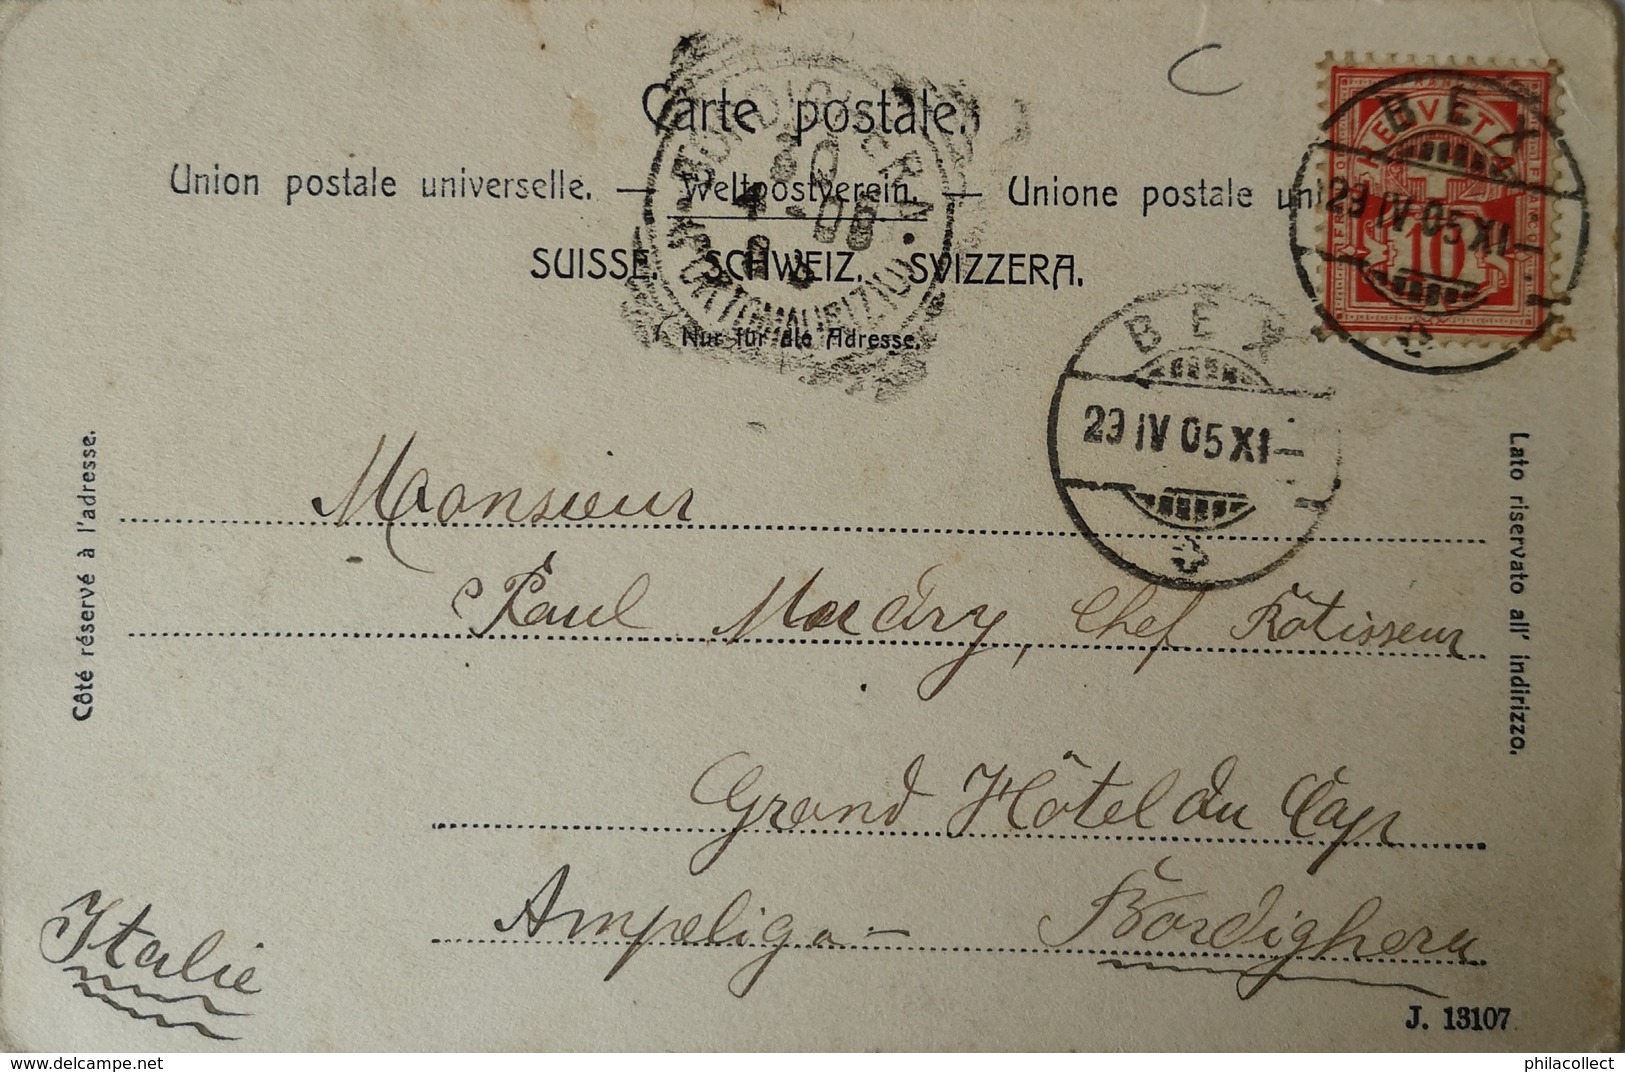 Carte postale.
Union postale universelle. — Weltpostverein. — Unione postale uni
SUISSE. SCHWEIZ. SVIZZERA.
Nur für die Adresse.
HELVETIA
10
BEX
29 IV 05 XI-
BEX
29 IV 05 XI-
Côté réservé à l'adresse.
Lato riservato all' indirizzo.
Monsieur
Paul Chef Rôtisseur
Grand Hôtel du Cap
Ampeliga - Bordighera
Italie
J. 13107
philacollect